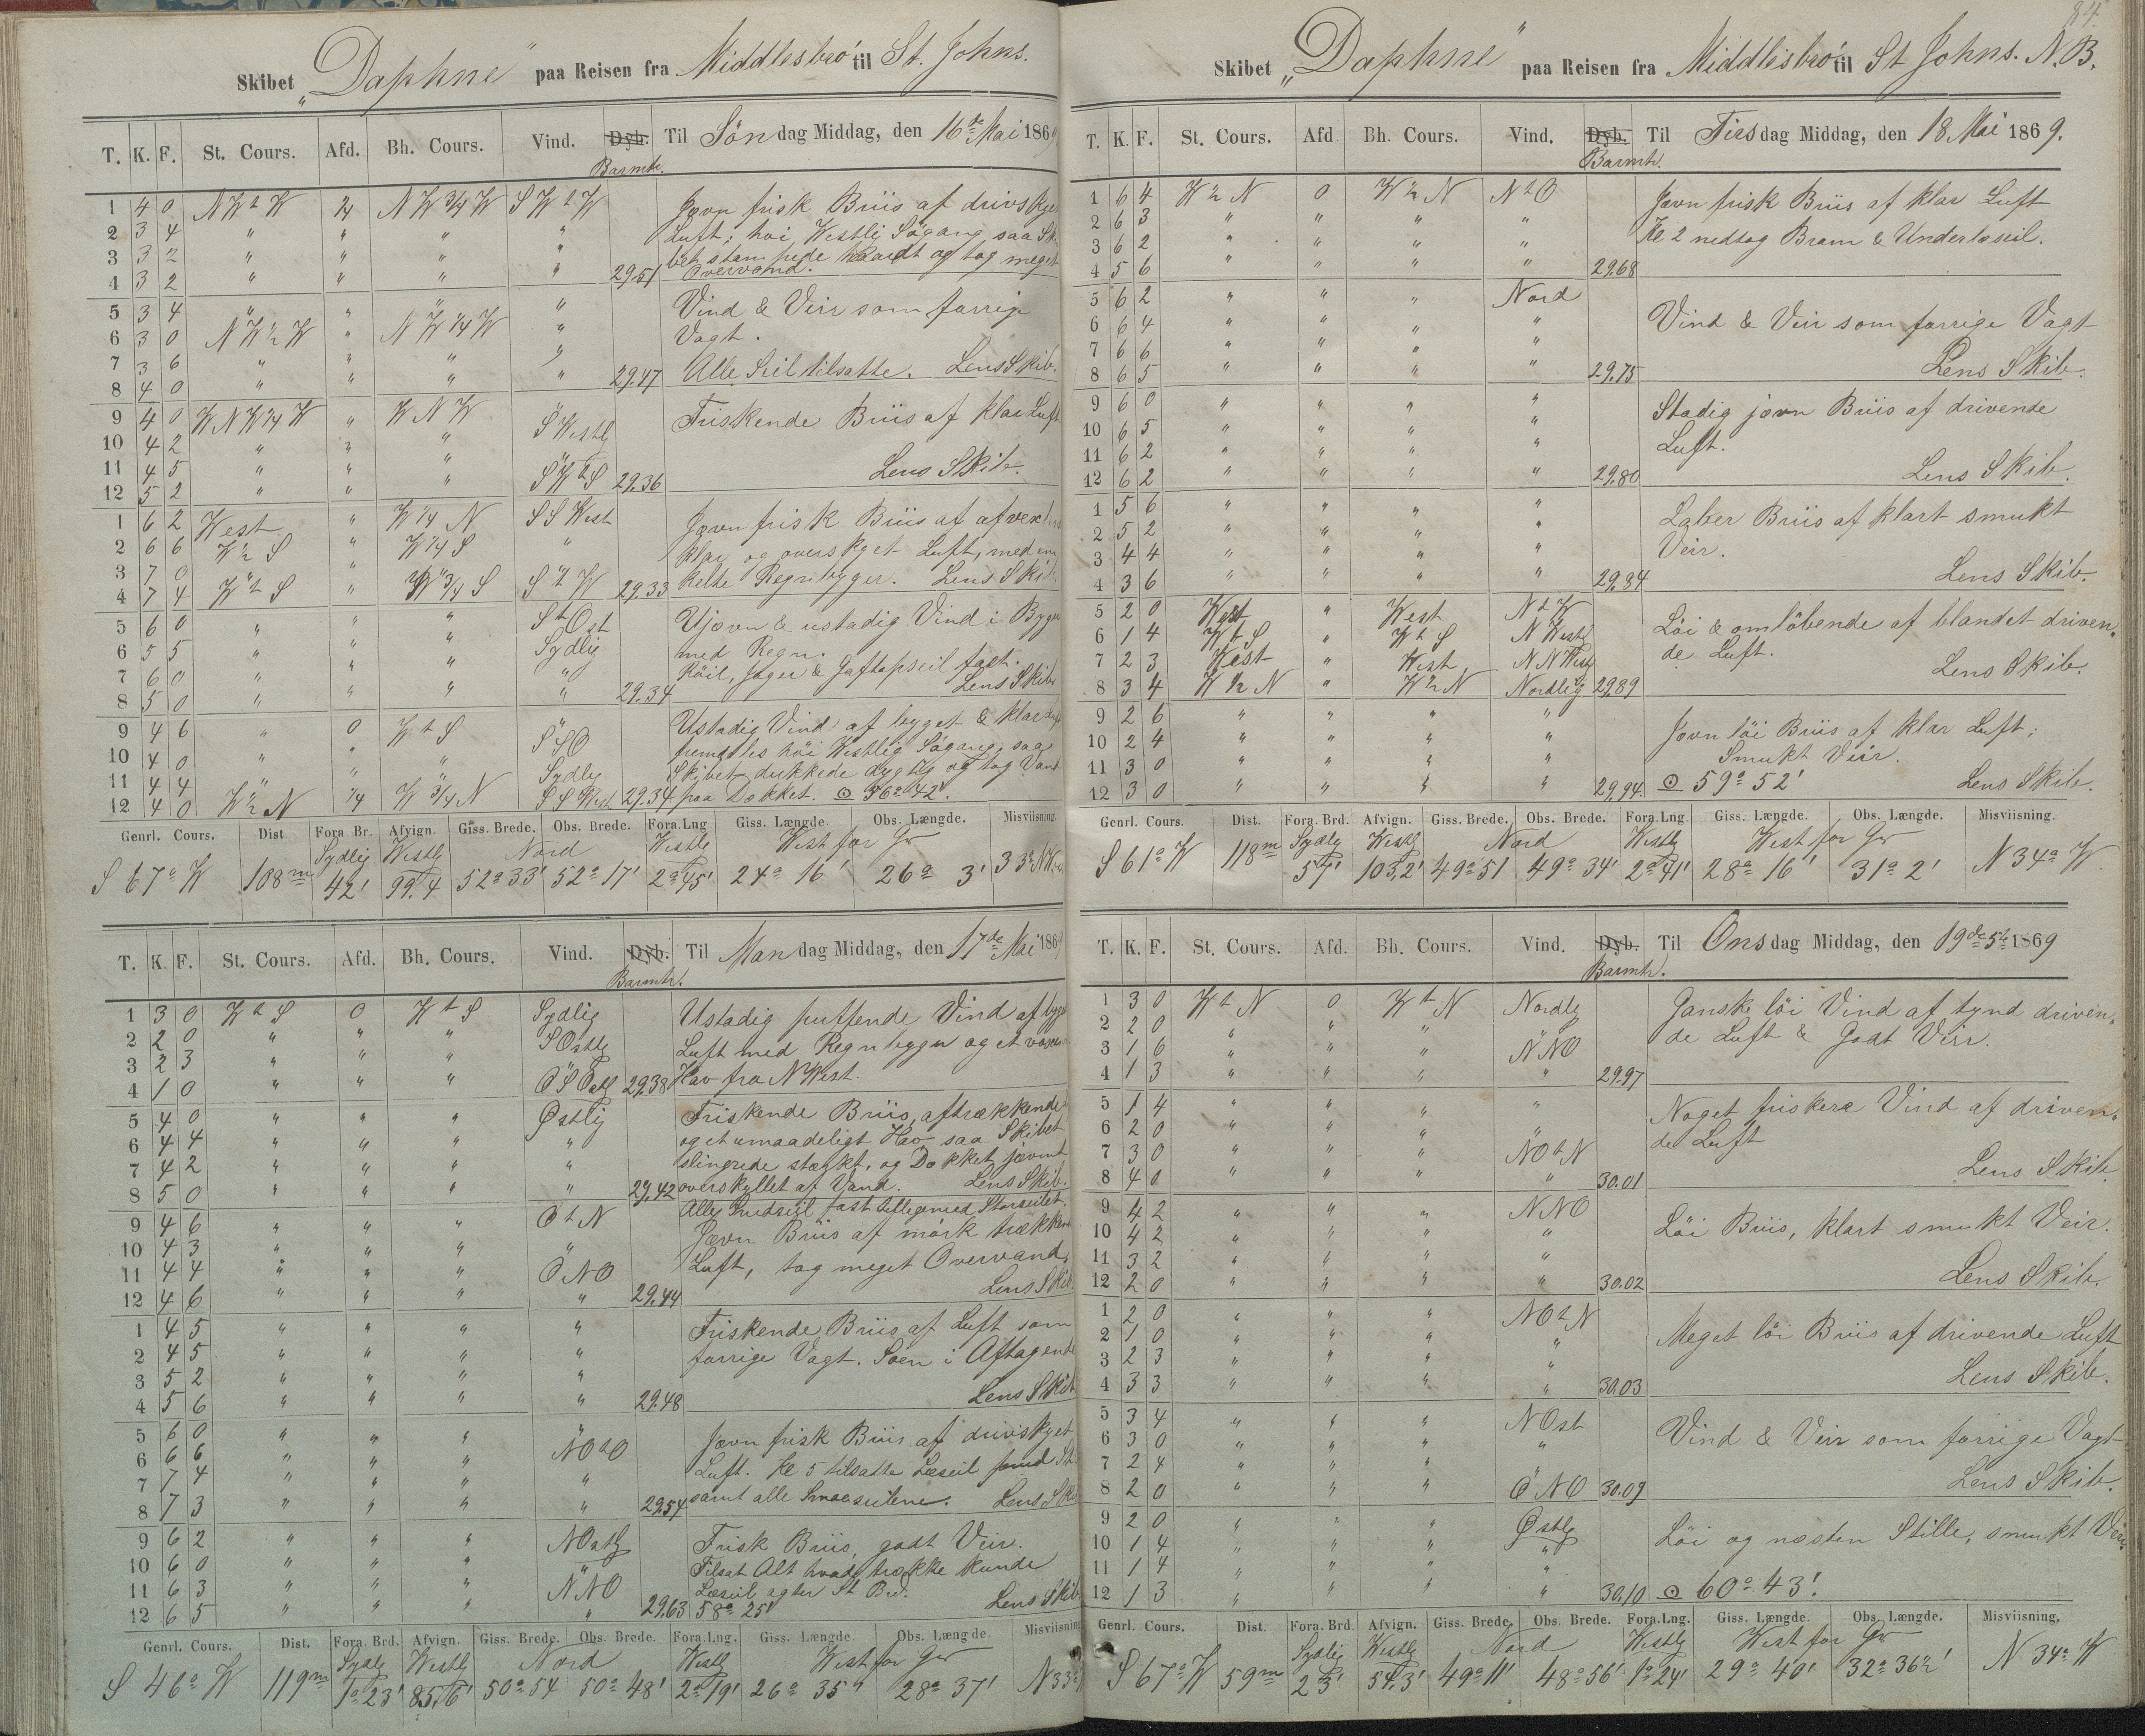 84.
Skibet „Daphne" paa Reisen fra Middlesbro' til St. Johns.
T. K. F. St. Cours. Afd. Bh. Cours. Vind. Dyb. Til Søndag Middag, den 16de Mai 1869
Barmtr.
1 4 0 NWtW 1/4 NW3/4W SWtW Jævn frisk Briis af drivskyet
2 3 4 " " " " Luft; høi Westli Søgang saa Ski
3 3 2 " " " " bet stampede haardt og tog meget
4 3 2 " " " " 29.51 Overvand.
5 3 4 " " " " Vind & Veir som forrige
6 3 0 NW1/2W " NW1/4W " Vagt.
7 3 6 " " " "
8 4 0 " " " " 29.47 Alle Seil tilsatte. Lens Skib.
9 4 0 WNW1/4W " WNW " Friskende Briis af klar Luft
10 4 2 " " " SWestl
11 4 5 " " " "
12 5 2 " " " SWtS 29.36 Lens Skib.
1 6 2 West " W1/4N SSWest Jævn frisk Briis af
2 6 6 W1/2S " W1/4S " klar og overskyet Luft, med en
3 7 0 " " " "
4 7 4 WtS " W3/4S StW 29.33 kelte Regnbyger. Lens Skib
5 6 0 " " " StOst Ujævn & ustadig Vind i Byger
6 5 5 " " " Sydlig med Regn.
7 6 0 " " " " Röil, Jager & Gaftopseil fast.
8 5 0 " " " " 29.34 Lens Skib
9 4 6 " 0 WtS " Ustadig Vind af byget & klar Luft
10 4 0 " " " SSO fremdeles høi Westlig Søgang, saa
11 4 4 " " " Sydlig Skibet dukkede dygtig og tog Vand
12 4 0 W1/2N 1/4 W3/4N SSWest 29.34 paa Dækket. ☉ 56° 42'.
Genrl. Cours. Dist. Fora. Br. Afvign. Giss. Brede. Obs. Brede. Fora. Lng Giss. Længde Obs. Længde. Misviisning.
Sydlig Westl Nord Westl West for Gr
S 67° W 108m 42' 99.4 52° 33' 52° 17' 2° 45' 24° 16' 26° 3' 33°
T. K. F. St. Cours. Afd. Bh. Cours. Vind. Dyb. Til Mandag Middag, den 17de Mai 1869
Barmtr.
1 3 0 WtS 0 WtS Sydlig Ustadig puffende Vind af byget
2 2 0 " " " SOstl Luft med Regnbyger og et voxende
3 2 3 " " " " Hav fra NWest.
4 1 0 " " " OSOstl 29.38
5 4 0 " " " Østlig Friskende Briis, aftrækkende
6 4 4 " " " " og et umaadeligt Hav saa Skibet
7 4 2 " " " " slingrede stærkt, og Dækket jævnt
8 5 0 " " " " 29.42 overskyllet af Vand. Lens Skib.
9 4 6 " " " OtN Alle fast tilligemed Storseilet.
10 4 3 " " " " Jævn Briis af mørk trækkende
11 4 4 " " " ONO Luft, tog meget Overvand.
12 4 6 " " " " 29.44 Lens Skib
1 4 5 " " " " Friskende Briis af Luft som
2 4 5 " " " " forrige Vagt. Søen i Aftagende
3 5 2 " " " "
4 5 6 " " " " 29.48 Lens Skib
5 6 0 " " " " Jævn frisk Briis af drivskyet
6 6 6 " " " NOtO Luft. Kl 5 tilsatte Læseil
7 7 4 " " " "
8 7 3 " " " " 29.54 samt alle Smaaseilene. Lens Skib
9 6 2 " " " NOstl Frisk Briis, godt Veir.
10 6 0 " " " " Tilsat Alt hvad trække kunde
11 6 3 " " " NNO Læseil agter St Br.
12 6 5 " " " " 29.63 58° 25' Lens Skib
Genrl. Cours. Dist. Fora. Brd. Afvign. Giss. Brede. Obs. Brede. Fora. Lng. Giss. Længde. Obs. Længde. Misviisning
Sydlig Westl Nord Westl West for Gr
S 46° W 119m 1° 23' 85.6' 50° 54 50° 48' 2° 19' 26° 35' 28° 37' N 33°
Skibet „Daphne" paa Reisen fra Middlesbro' til St Johns. N.B.
T. K. F. St. Cours. Afd Bh. Cours. Vind. Dyb. Til Tirsdag Middag, den 18 Mai 1869.
Barmtr.
1 6 4 W1/2N 0 W1/2N NtO Jævn frisk Briis af klar Luft
2 6 3 " " " " Kl 2 nedtog Bram & Underlæseil.
3 6 2 " " " "
4 5 6 " " " " 29.68
5 6 2 " " " Nord
6 6 4 " " " " Vind & Veir som forrige Vagt
7 6 6 " " " "
8 6 5 " " " " 29.75 Lens Skib.
9 6 0 " " " " Stadig jævn Briis af drivende
10 6 5 " " " " Luft.
11 6 2 " " " "
12 6 2 " " " " 29.80 Lens Skib.
1 5 6 " " " " Laber Briis af klart smukt
2 5 2 " " " " Veir.
3 4 4 " " " "
4 3 6 " " " " 29.84 Lens Skib.
5 2 0 West " West NtW Löi & omløbende af blandet driven-
6 1 4 WtS " WtS NWestl de Luft.
7 2 3 West " West NNWestl Lens Skib.
8 3 4 W1/2N " W1/2N Nordlig 29.89
9 2 6 " " " " Jævn löi Briis af klar Luft;
10 2 4 " " " " Smukt Veir.
11 3 0 " " " "
12 3 0 " " " " 29.94. ☉ 59° 52' Lens Skib.
Genrl. Cours. Dist. Fora. Brd. Afvign. Giss. Brede. Obs. Brede. Fora. Lng. Giss. Længde Obs. Længde. Misviisning.
Sydlig Westl Nord Westl West for Gr
S 61° W 118m 57' 103.2' 49° 51 49° 34' 2° 41' 28° 16' 31° 2' N 34° W
T. K. F. St. Cours. Afd. Bh. Cours. Vind. Dyb. Til Onsdag Middag, den 19de 5te 1869
Barmtr.
1 3 0 WtN 0 WtN Nordlg Ganske löi Vind af tynd driven-
2 2 0 " " " " de Luft & Godt Veir.
3 1 6 " " " NNO
4 1 3 " " " " 29.97
5 1 4 " " " " Noget friskere Vind af driven-
6 2 0 " " " " de Luft
7 3 0 " " " NOtN
8 4 0 " " " " 30.01 Lens Skib
9 4 2 " " " NNO
10 4 2 " " " " Löi Briis, klart smukt Veir.
11 3 2 " " " "
12 2 0 " " " " 30.02 Lens Skib.
1 2 0 " " " NOtN
2 1 0 " " " " Meget löi Briis af drivende Luft
3 2 3 " " " "
4 3 3 " " " " 30.03 Lens Skib.
5 3 4 " " " NOst
6 3 0 " " " " Vind & Veir som forrige Vagt
7 2 4 " " " "
8 2 0 " " " ONO 30.09 Lens Skib.
9 2 0 " " " Østlg Löi og næsten Stille, smukt Veir.
10 1 4 " " " "
11 1 4 " " " "
12 1 3 " " " " 30.10 ☉ 60° 43'.
Genrl. Cours. Dist. Fora. Brd. Afvign. Giss. Brede. Obs. Brede. Fora. Lng. Giss. Længde. Obs. Længde. Misviisning.
Sydlig Westl Nord Westl West for Gr
S 67° W 59m 23' 54.3' 49° 11' 48° 56' 1° 24' 29° 40' 32° 36 1/2' N 34° W